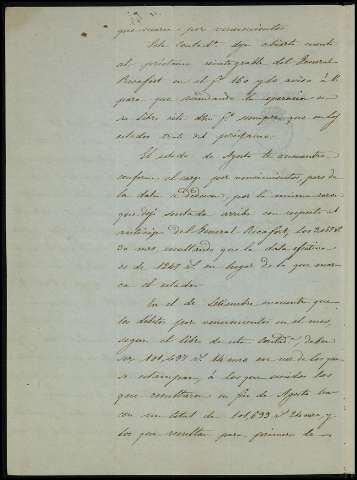 que vencen por vencimientos
Esta Contad.ª deja abierta cuenta
al préstamo reintegrable del General
Ricafort en el f.º 160 y lo avisa á V.
para que mandando la operacion en
su libro este dho f.º siempre que en los
estados trate del préstamo.
El estado de Agosto se encuentra
conforme el cargo por vencimientos, pero de
la data se deducen, por la misma razon
que dejó sentada arriba con respecto al
anticipo del General Ricafort, los
30 mrs, resultando que la data efectiva
es de 1241 rs en lugar de la que mar-
ca el estado.
En el de Setiembre encuentra que
los débitos por vencimientos en el mes,
segun el libro de esta Contad.ª, deben
ser 101,497 rs 14 mrs en vez de los que
se estampan, á los que unidos los
que resultaron en fin de Agosto ha-
cen un total de 101,633 rs 24 mrs, y
los que resultan para primero de